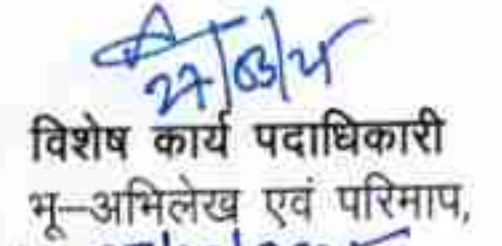 27/03/25
विशेष कार्य पदाधिकारी
भू-अभिलेख एवं परिमाप,